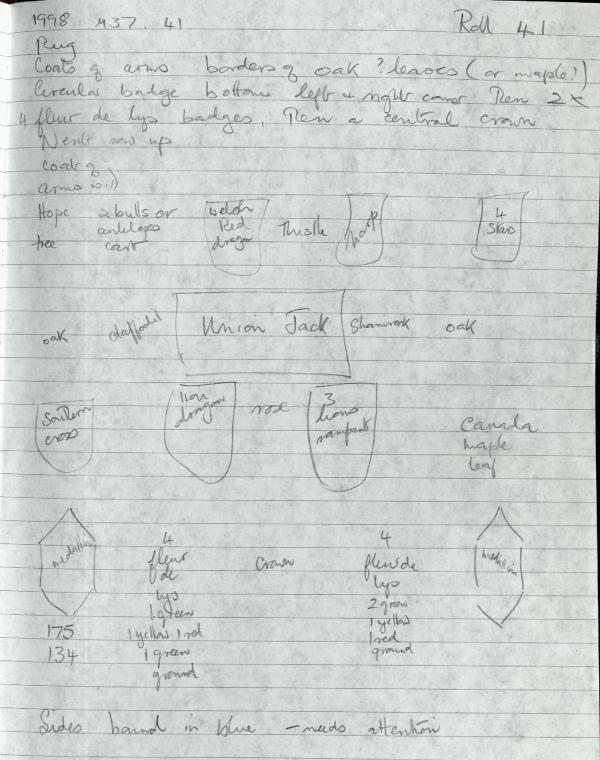 1998 M37. 41 Roll 41
Rug
Coats of arms borders of oak ? leaves (or maple?)
Circular badge bottom left + right corner Then 2x
4 fleur de lys badges, Then a central crown
Next row up
coats of
arms
Hope 2 bulls or Welsh Thistle harp 4
tree antelops Red Stars
cart dragon
oak daffodil Union Jack Shamrock oak
Southern lion rose 3
cross dragon lions
rampant Canada
maple
leaf
medallion 4 Crown 4 medallion
fleur fleur de
de lys
lys 2 green
1 green 1 yellow
175 1 yellow 1 red 1 red
134 1 green ground
ground
Sides bound in blue – needs attention